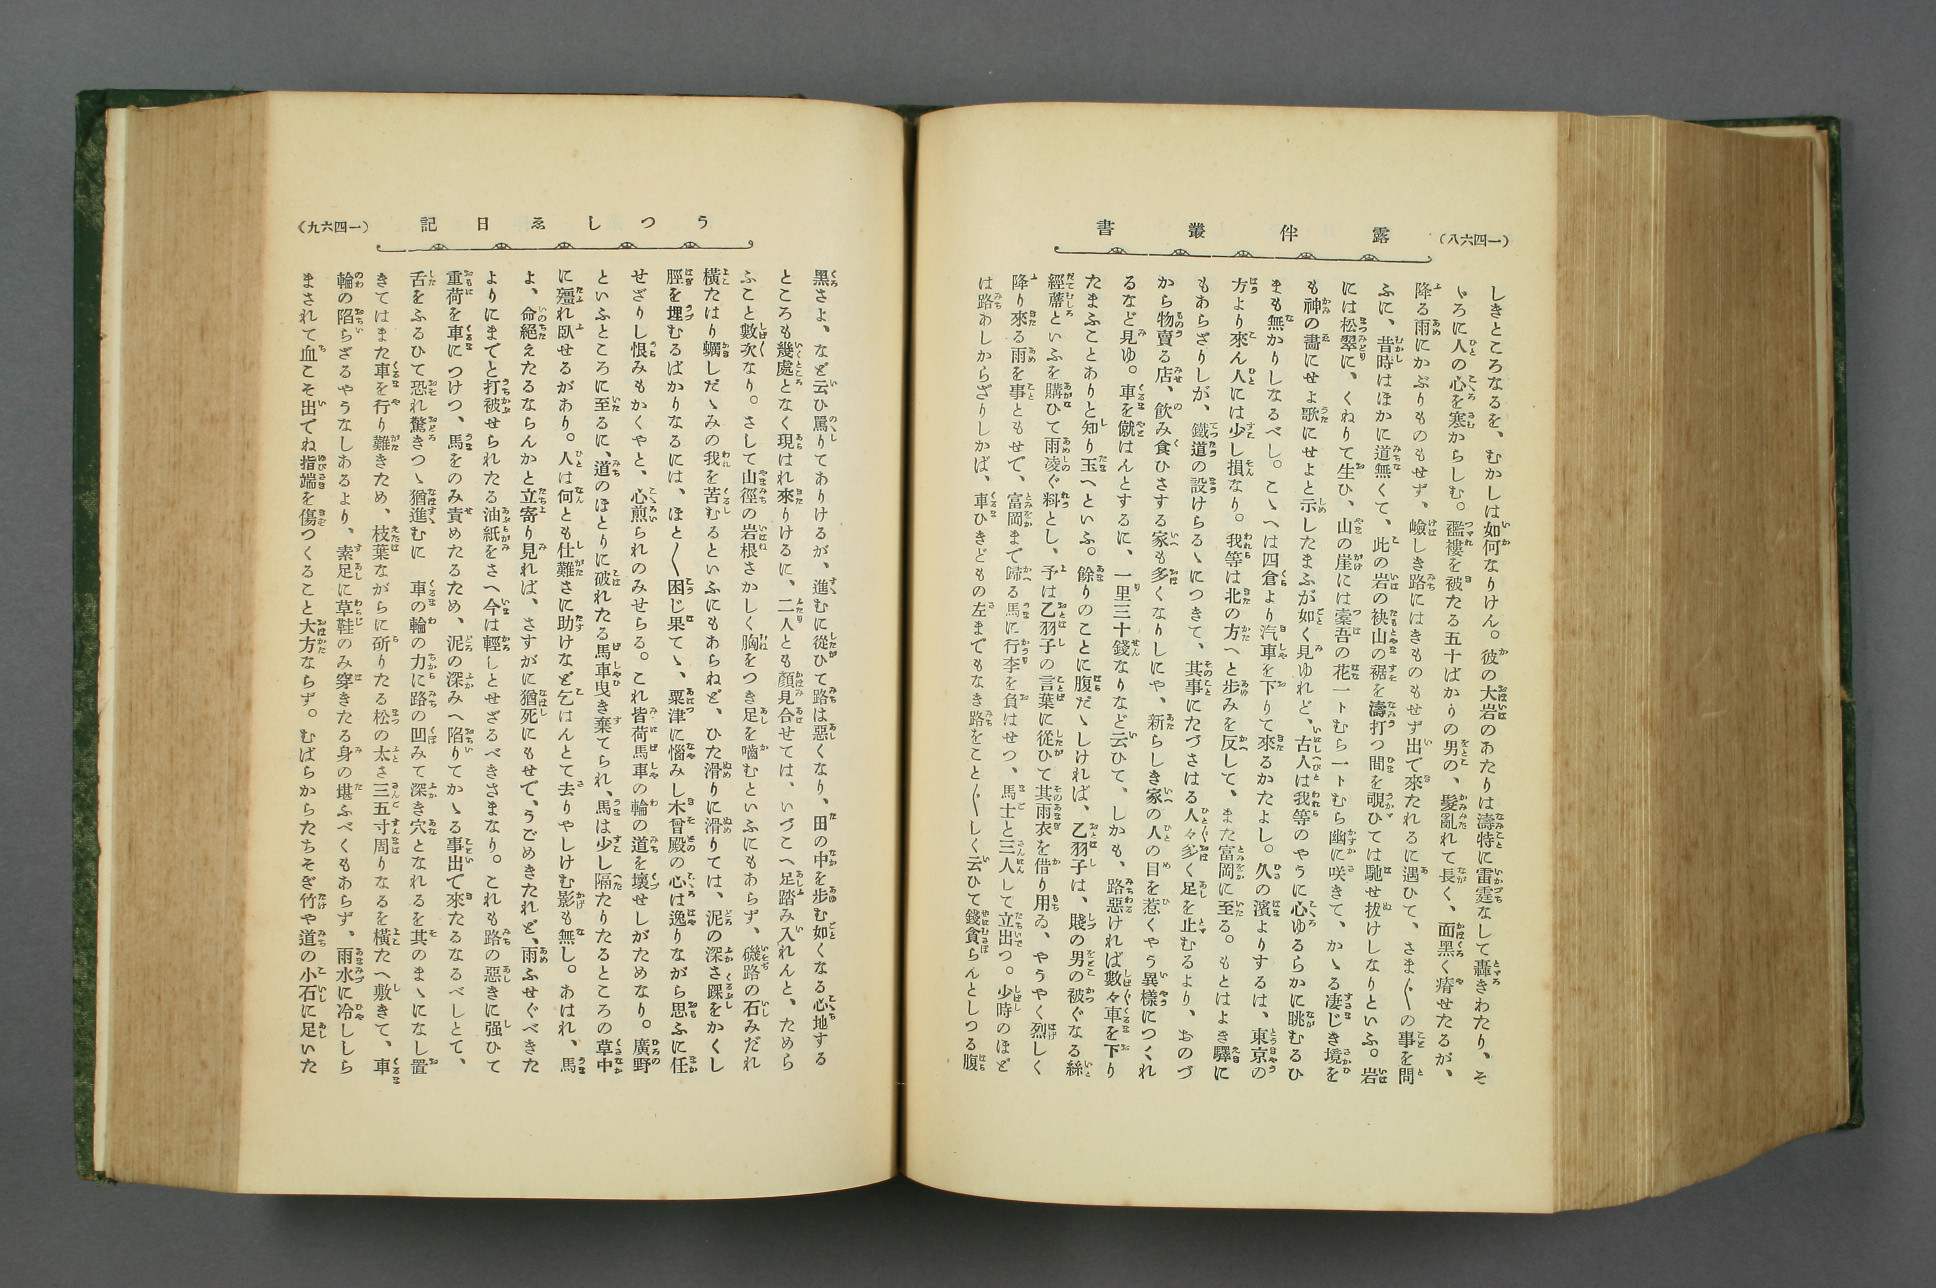 （一四六八）
露伴叢書
しきところなるを、むかしは如何なりけん。彼の大岩のあたりは濤特に雷霆なして轟きわたり、そ
ゞろに人の心を寒からしむ。襤褸を被たる五十ばかりの男の、髮亂れて長く、面黑く瘠せたるが、
降る雨にかぶりものもせず、嶮しき路にはきものもせず出で來たれるに遇ひて、さま〴〵の事を問
ふに、昔時はほかに道無くて、此の岩の袂山の裾を濤打つ間を覗ひては馳せ拔けしなりといふ。岩
には松翠に、くねりて生ひ、山の崖には橐吾の花一トむら一トむら幽に咲きて、かゝる凄じき境を
も神の畵にせよ歌にせよと示したまふが如く見ゆれど、古人は我等のやうに心ゆるらかに眺むるひ
まも無かりしなるべし。こゝへは四倉より汽車を下りて來るかたよし。久の濱よりするは、東京の
方より來ん人には少し損なり。我等は北の方へと歩みを反して、また富岡に至る。もとはよき驛に
もあらざりしが、鐵道の設けらるゝにつきて、其事にたづさはる人々多く足を止むるより、おのづ
から物賣る店、飮み食ひさする家も多くなりしにや、新らしき家の人の目を惹くやう異樣につくれ
るなど見ゆ。車を僦はんとするに、一里三十錢なりなど云ひて、しかも、路惡ければ數々車を下り
たまふことありと知り玉へといふ。餘りのことに腹だゝしければ、乙羽子は、賤の男の被ぐなる絲
經蓆といふを購ひて雨凌ぐ料とし、予は乙羽子の言葉に從ひて其雨衣を借り用ゐ、やうやく烈しく
降り來る雨を事ともせで、富岡まで歸る馬に行李を負はせつ、馬士と三人して立出つ。少時のほど
は路あしからざりしかば、車ひきどもの左までもなき路をこと〴〵しく云ひて錢貪らんとしつる腹
うつしゑ日記
（一四六九）
黑さよ、など云ひ罵りてありけるが、進むに從ひて路は惡くなり、田の中を歩む如くなる心地する
ところも幾處となく現はれ來りけるに、二人とも顏見合せては、いづこへ足踏み入れんと、ためら
ふこと數次なり。さして山徑の岩根さかしく胸をつき足を嚙むといふにもあらず、磯路の石みだれ
橫たはり蠣しだゝみの我を苦むるといふにもあらねど、ひた滑りに滑りては、泥の深さ踝をかくし
脛を埋むるばかりなるには、ほと〳〵困じ果てゝ、粟津に惱みし木曾殿の心は逸りながら思ふに任
せざりし恨みもかくやと、心煎られのみせらる。これ皆荷馬車の輪の道を壞せしがためなり。廣野
といふところに至るに、道のほとりに破れたる馬車曳き棄てられ、馬は少し隔たりたるところの草中
に殭れ臥せるがあり。人は何とも仕難さに助けなど乞はんとて去りやしけむ影も無し。あはれ、馬
よ、命絕えたるならんかと立寄り見れば、さすがに猶死にもせで、うごめきたれど、雨ふせぐべきた
よりにまてと打被せられたる油紙をさへ今は輕しとせざるべきさまなり。これも路の惡きに强ひて
重荷を車につけつ、馬をのみ責めたるため、泥の深みへ陷りてかゝる事出で來たるなるべしとて、
舌をふるひて恐れ驚きつゝ猶進むに　車の輪の力に路の凹みて深き穴となれるを其のまゝになし置
きてはまた車を行り難きため、枝葉ながらに斫りたる松の太さ三五寸周りなるを橫たへ敷きて、車
輪の陷らざるやうなしあるより、素足に草鞋のみ穿きたる身の堪ふべくもあらず、雨水に冷ししら
まされて血こそ出でね指端を傷つくること大方ならず。むばらからたちそぎ竹や道の小石に足いた